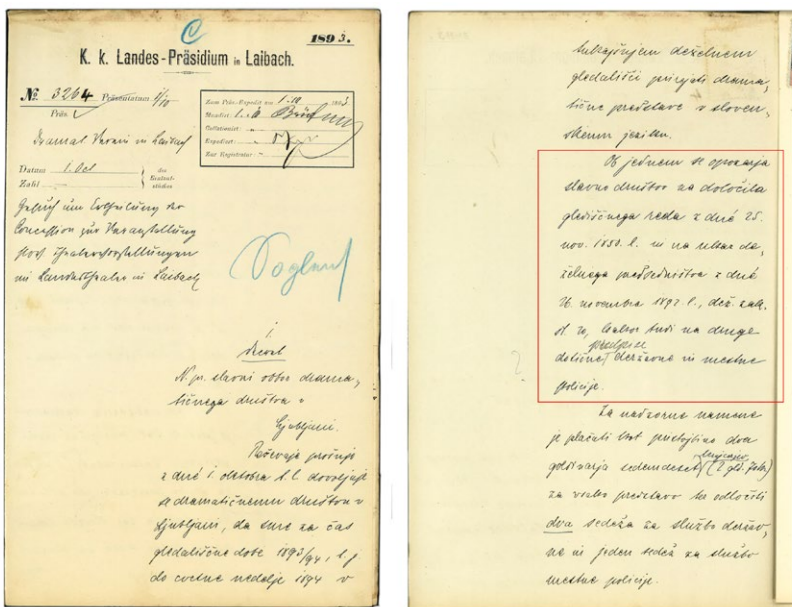 C
1893.
K. k. Landes-Präsidium in Laibach.
№ 3264 Präsentatum
Präs.
Dramat. Verein in Laibach
Datum 1. Oct
Zahl
des Einlauf-stückes
Gesuch um Ertheilung der
Concession zur Veranstaltung
slov. Theatervorstellungen
im Landestheater in Laibach
I.
Decret
N. pr. slavni odbor drama,
tičnega društva v
Ljubljani.
prošnji
z dné 1. oktobra t. l. dovoljuje
se dramatičnemu društvu v
Ljubljani, da sme za čas
gledališčne dobe 1893/94, t. j.
do cvetne nedelje 1894 v
tukajšnjem deželnem
gledališči prirejati drama,
tične predstave v sloven,
skem jeziku.
Ob jednem se opozarja
slavno društvo na določila
glediščnega reda z dné 25.
nov. 1850. l. in na ukaz de,
želnega predsedništva z dné
26. novembra 1892. l., dež. zak.
št. kakor tudi na druge
predpise
dotične državne in mestne
policije.
Za nadzorne namene
je plačati kot pristojbino dva
goldinarja sedemdeset krajcarjev (2 gld. 70 kr.)
za vsako predstavo ter odločiti
dva sedeža za službo držav,
ne in jeden sedež za službo
mestne policije.